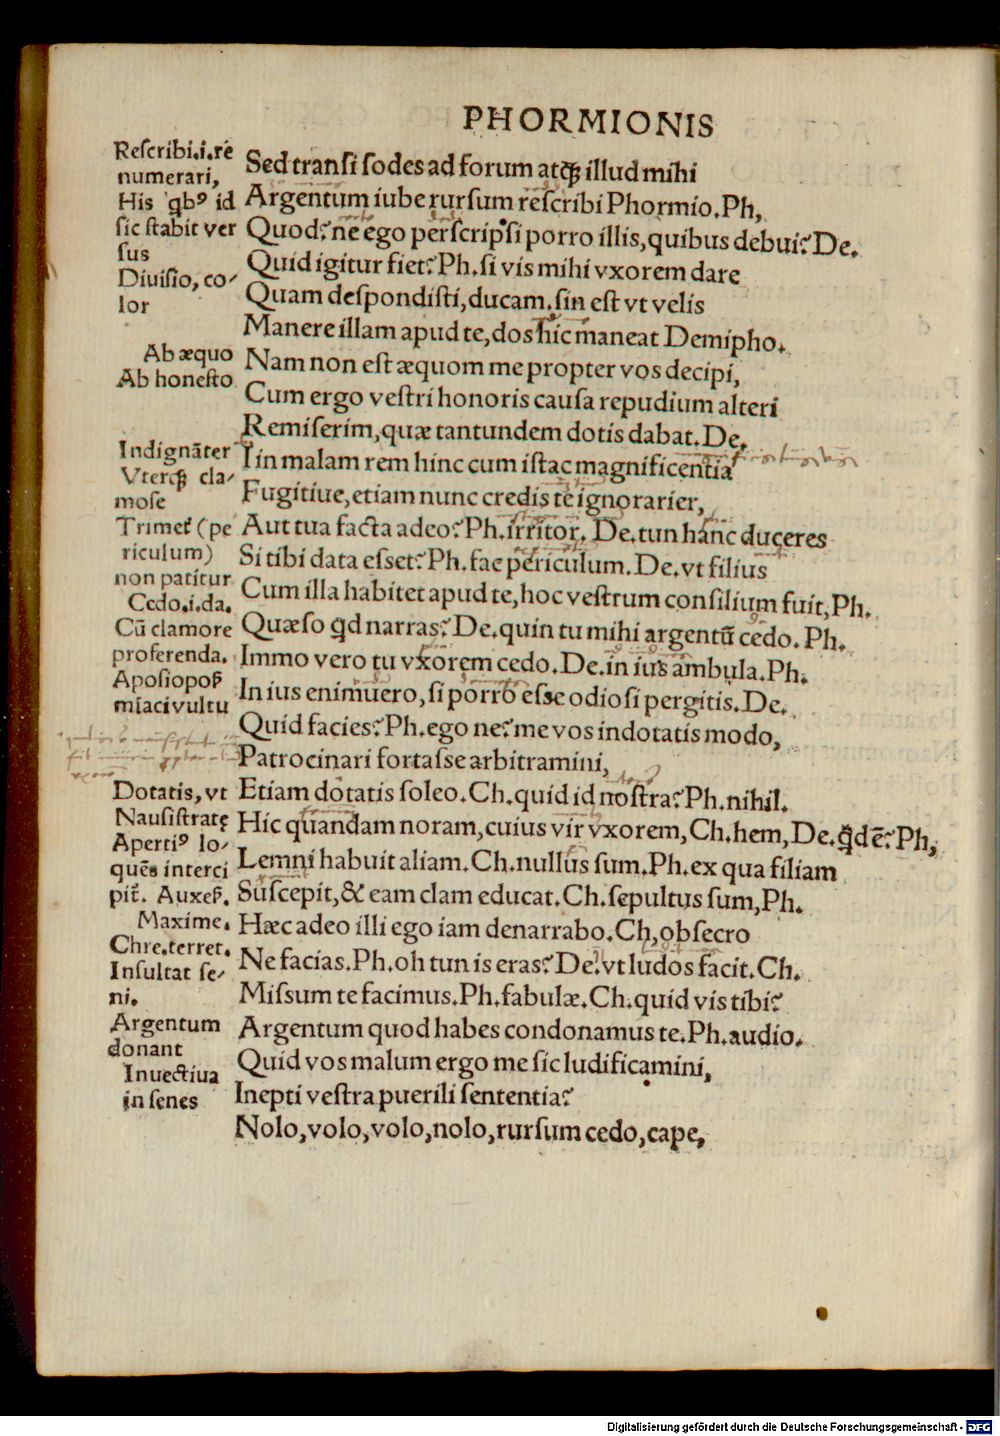 PHORMIONIS
Rescribi.i.rē
numerari,
His qbꝰ id
sic stabit ver
sus
Diuisio, co-
lor
Ab æquo
Ab honesto
Indignāter
Vterqꝫ cla-
mose
Trimet̃ (pe
riculum)
non patitur
Cedo.i.da.
Cū clamore
proferenda.
Aposiopos̃
miaci vultu
Dotatis, vt
Nausistratę
Apertiꝰ lo-
quēs interci
pit̃. Auxes̃.
Maxime.
Chre.terret.
Insultat se-
ni.
Argentum
donant
Inuectiua
in senes
Sed transi sodes ad forum atqꝫ illud mihi
Argentum iube rursum rescribi Phormio.Ph,
Quod? ne ego perscripsi porro illis, quibus debui? De.
Quid igitur fiet? Ph. si vis mihi vxorem dare
Quam despondisti, ducam. sin est vt velis
Manere illam apud te, dos hic maneat Demipho.
Nam non est æquom me propter vos decipi,
Cum ergo vestri honoris causa repudium alteri
Remiserim, quæ tantundem dotis dabat. De.
I in malam rem hinc cum istac magnificentia
Fugitiue, etiam nunc credis te ignorarier,
Aut tua facta adeo? Ph. irritor. De. tun hanc duceres
Si tibi data esset? Ph. fac periculum. De. vt filius
Cum illa habitet apud te, hoc vestrum consilium fuit, Ph.
Quæso qd narras? De. quin tu mihi argentū cedo. Ph.
Immo vero tu vxorem cedo. De. in ius ambula. Ph.
In ius enimuero, si porro esse odiosi pergitis. De.
Quid facies? Ph. ego ne? me vos indotatis modo,
Patrocinari fortasse arbitramini,
Etiam dotatis soleo. Ch. quid id nostra? Ph. nihil.
Hic quandam noram, cuius vir vxorem, Ch. hem, De. qd ē? Ph,
Lemni habuit aliam. Ch. nullus sum. Ph. ex qua filiam
Suscepit, & eam clam educat. Ch. sepultus sum, Ph.
Hæc adeo illi ego iam denarrabo. Ch, obsecro
Ne facias. Ph. oh tun is eras? De. vt ludos facit. Ch.
Missum te facimus. Ph. fabulæ. Ch. quid vis tibi?
Argentum quod habes condonamus te. Ph. audio.
Quid vos malum ergo me sic ludificamini,
Inepti vestra puerili sententia?
Nolo, volo, volo, nolo, rursum cedo, cape,
Digitalisierung gefördert durch die Deutsche Forschungsgemeinschaft - DFG